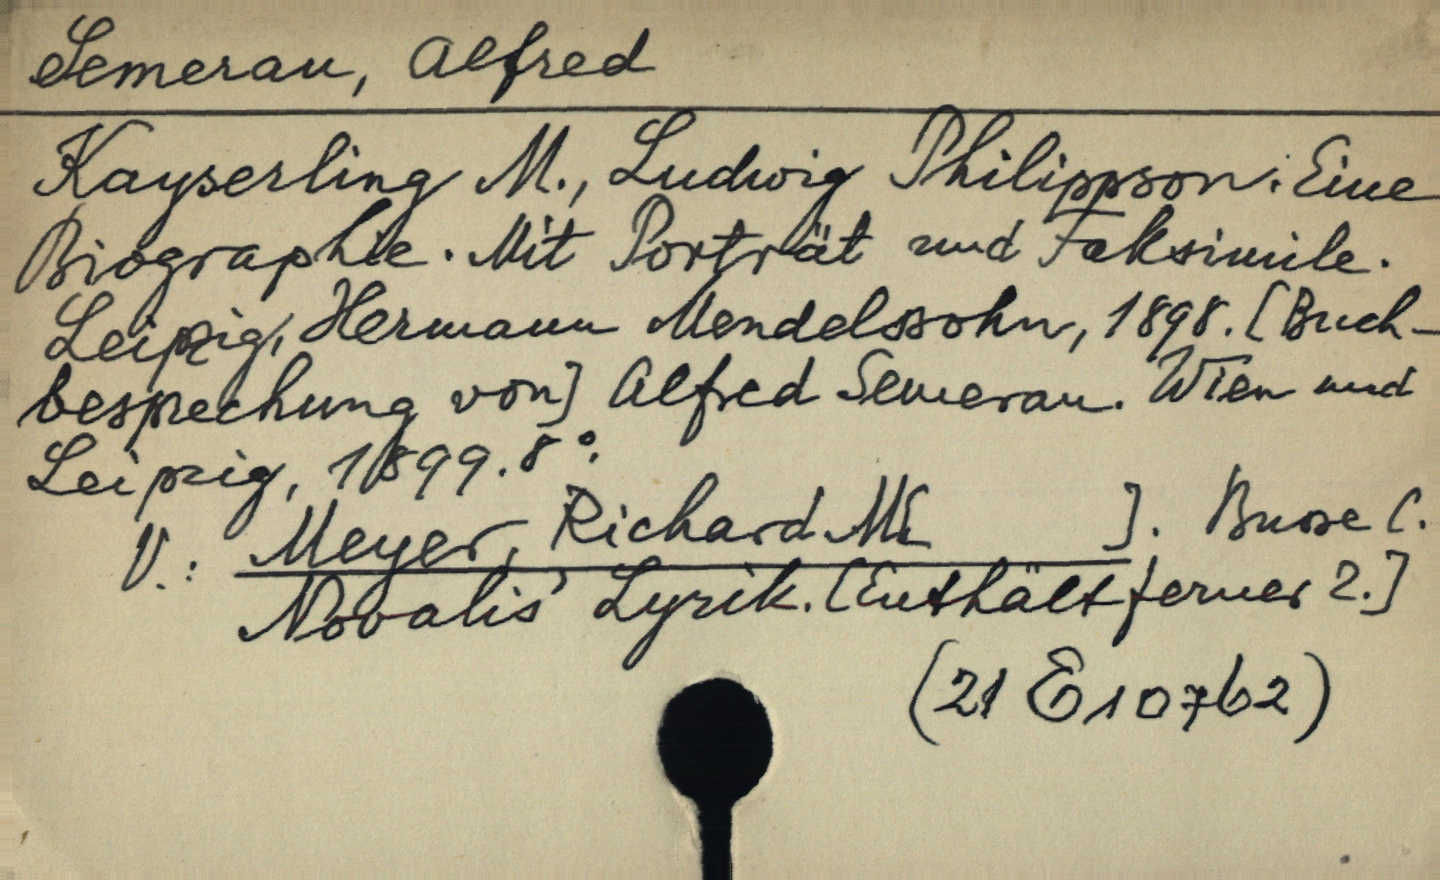 Semerau, Alfred
Kayserling M., Ludwig Philippson. Eine
Biographie. Mit Porträt und Faksimile.
Leipzig, Hermann Mendelssohn, 1898. [Buch-
besprechung von] Alfred Semerau. Wien und
Leipzig, 1899. 8°.
V.: Meyer, Richard M[ ]. Busse C.
Novalis' Lyrik. [Enthält ferner 2.]
(21 E 10762)